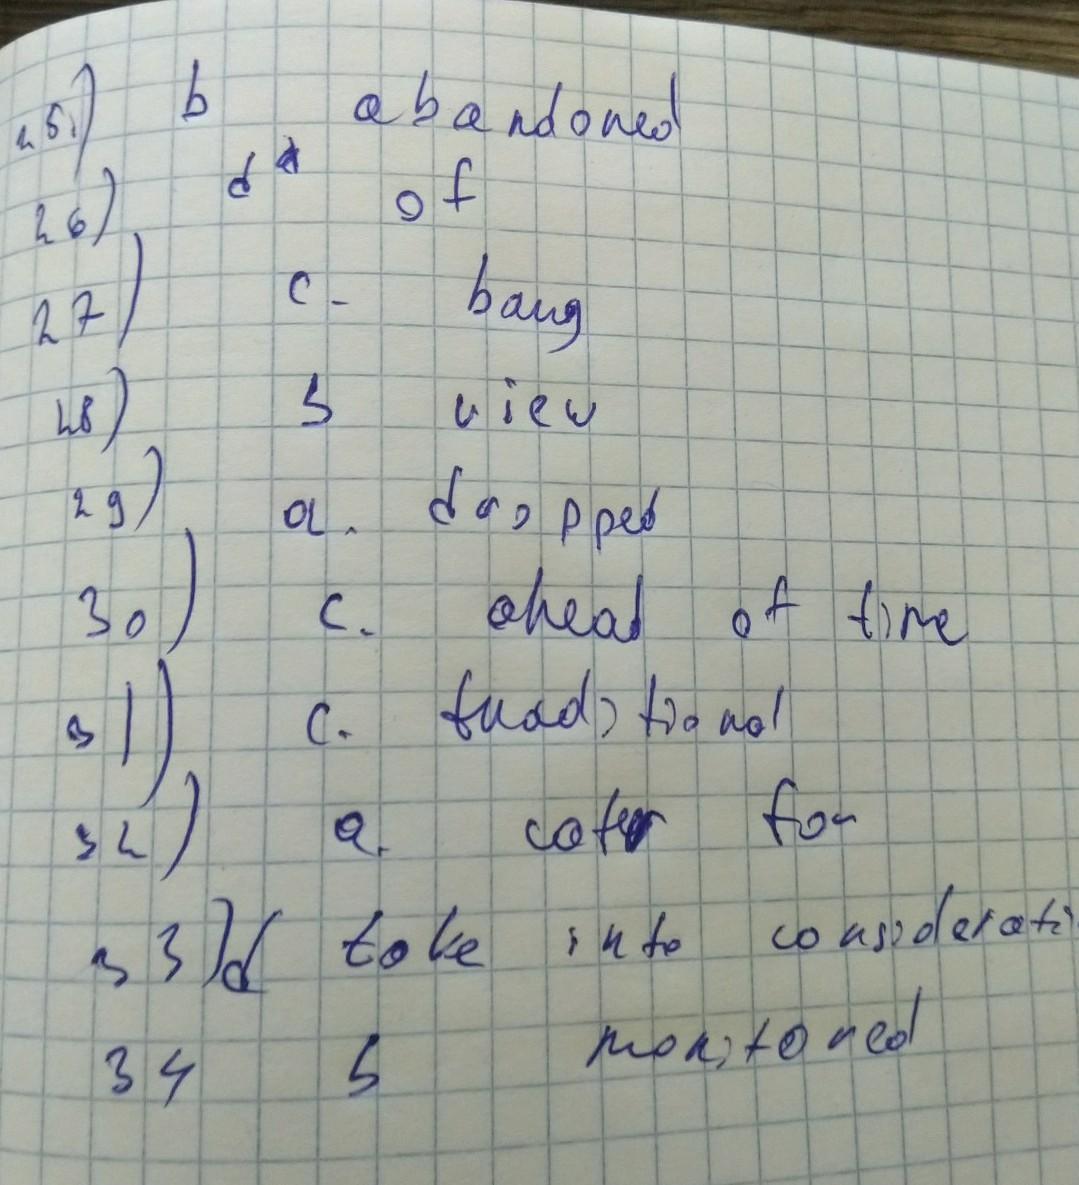 25.) b abandoned
26) d of
27) c- bang
28) b view
29) a. dropped
30) c. ahead of time
31) c. traditional
32) a. cater for
33) d take into considerati
34 b monitored